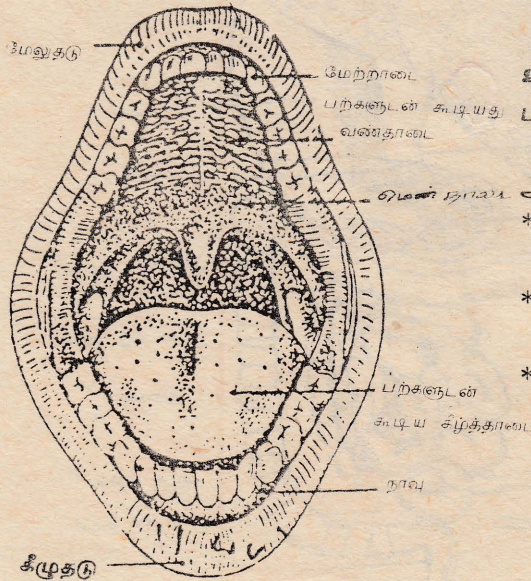 மேலுதடு
மேற்றாடை
பற்களுடன் கூடியது
வண்தாடை
மென்
பற்களுடன்
கூடிய கீழ்த்தாடை
நாவு
கீழுதடு